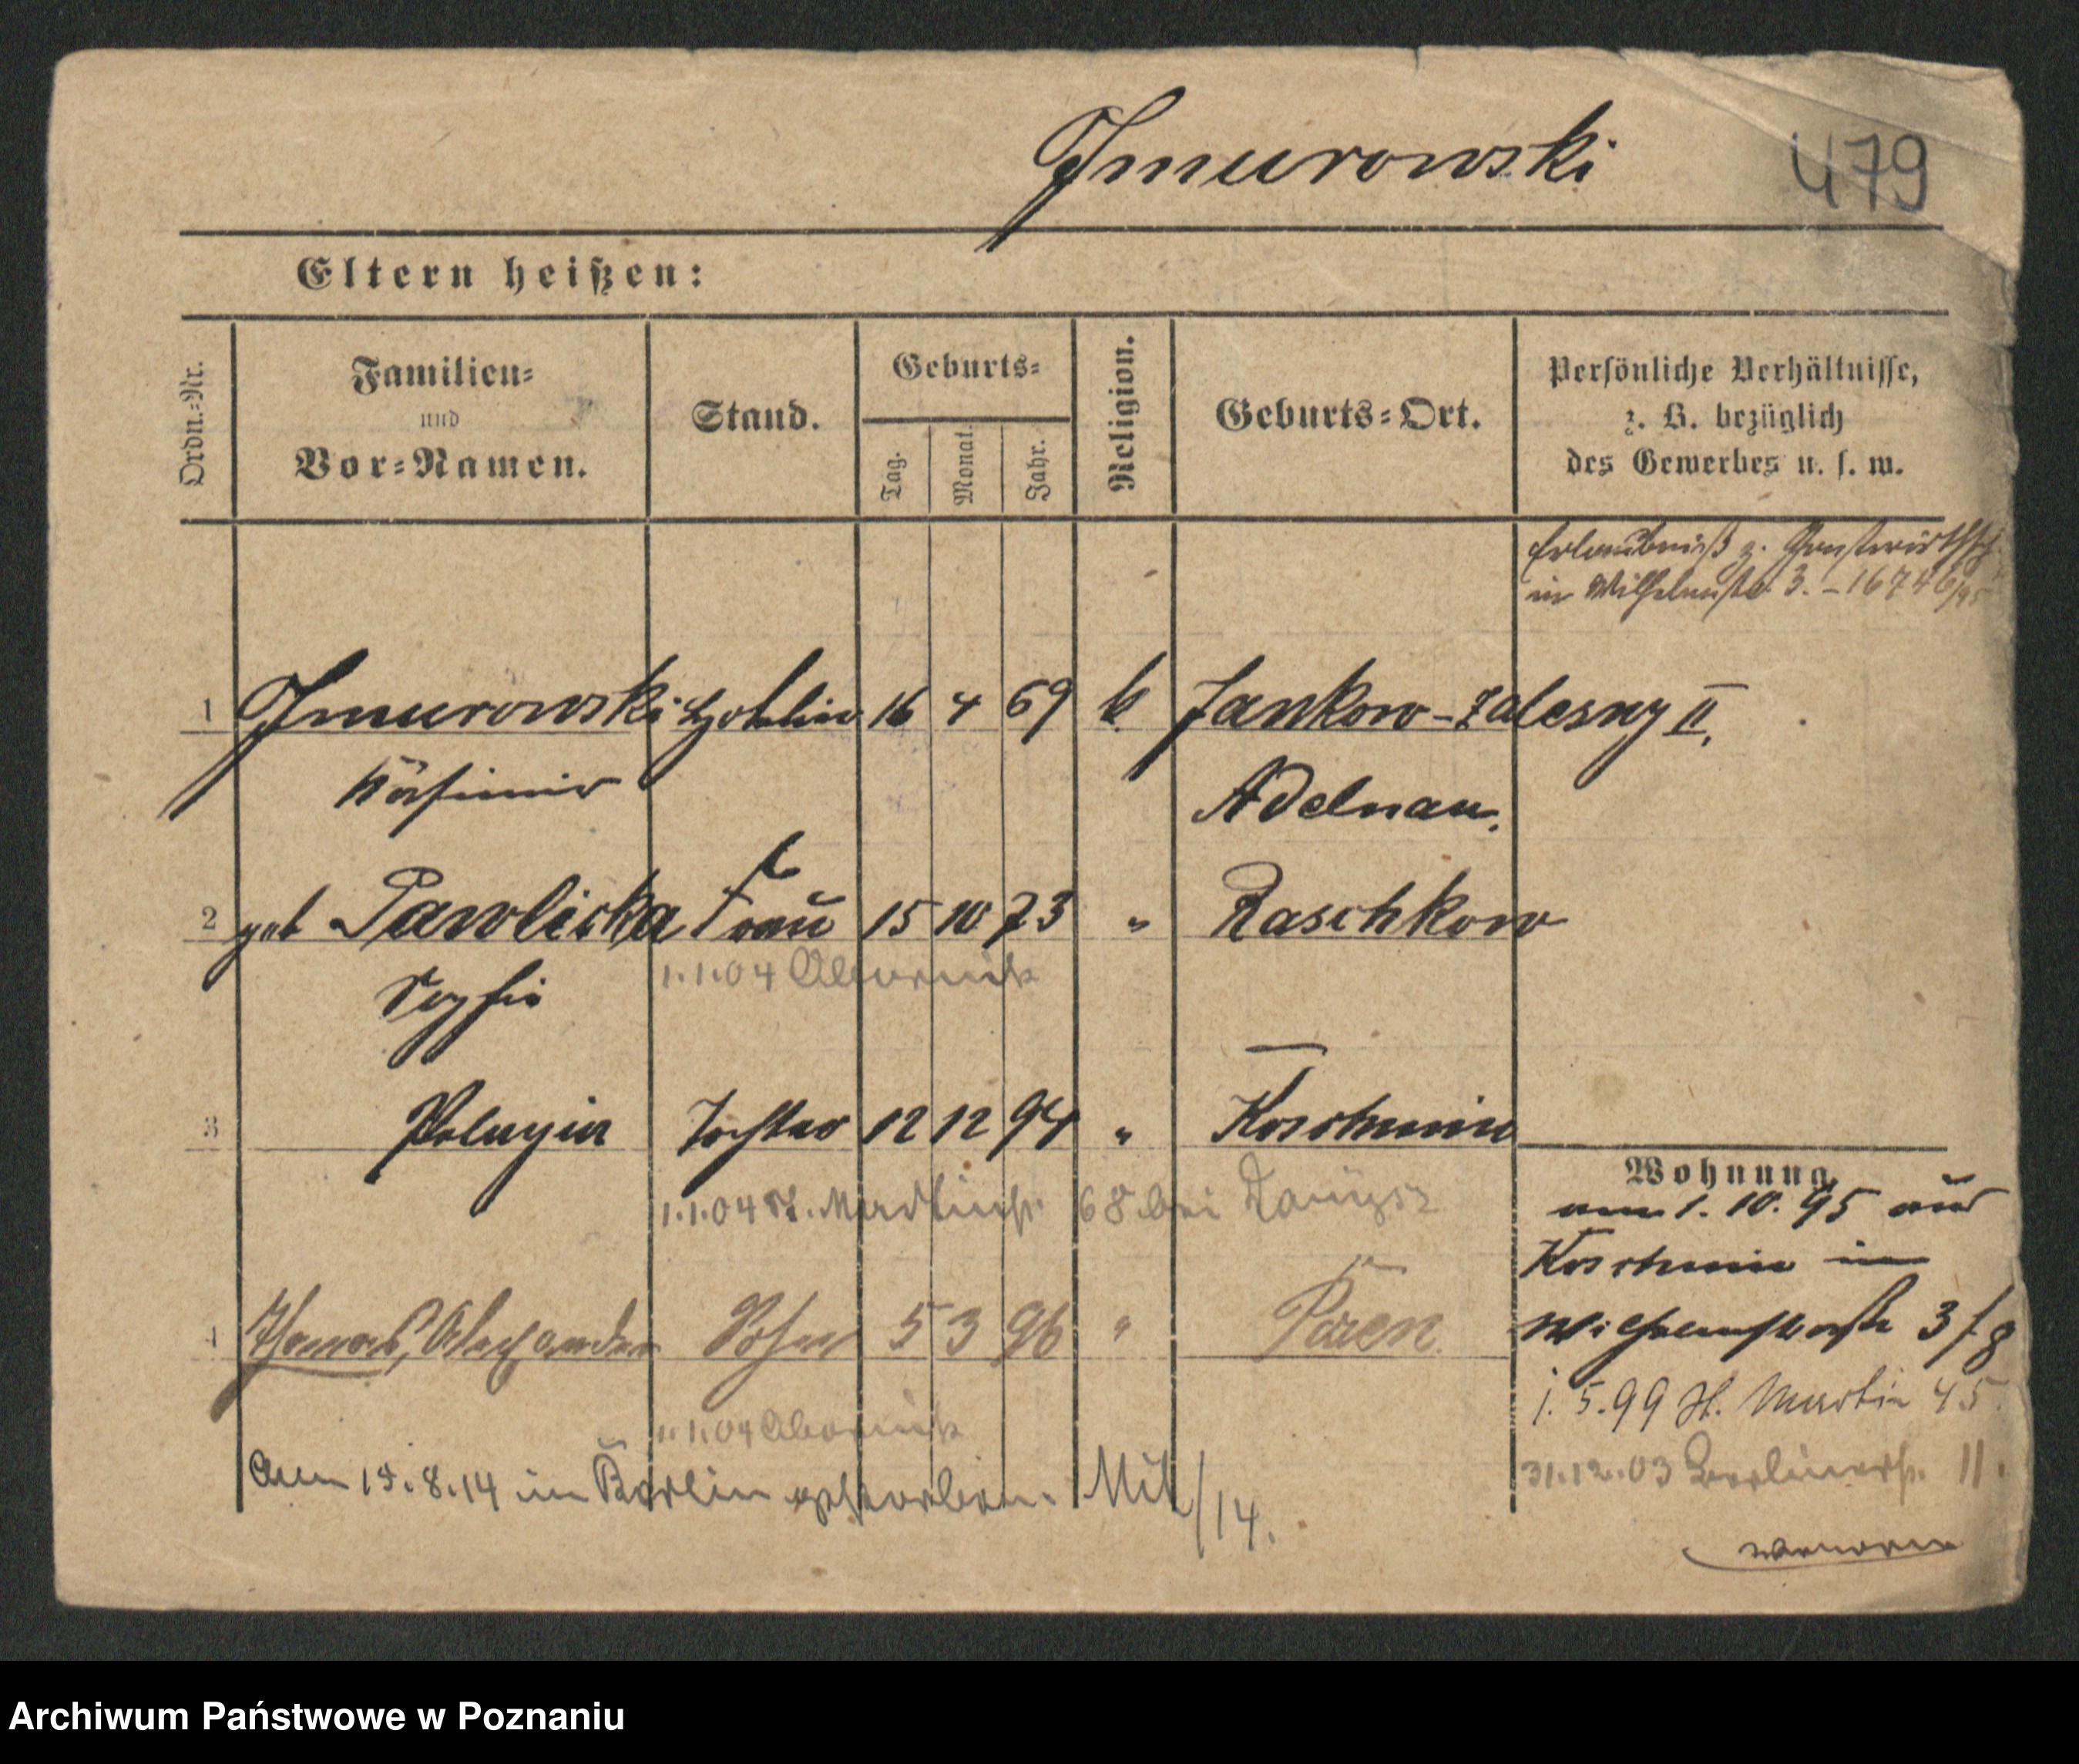 Jmurowski
479
Eltern heißen:
Ordn.-Nr.
Familien-
und
Vor-Namen.
Stand.
Geburts-
Tag.
Monat.
Jahr.
Religion.
Geburts-Ort.
Persönliche Verhältnisse,
z. B. bezüglich
des Gewerbes u. s. w.
Erlaubniß z. Gastwirthsch.
in Wilhelmstr. 3. – 1674 6/95
1 Jmurowski 16 4 69 k. Jankow-Zalesny II.
Kasimir Adelnau.
2 geb Pawlicka Frau 15 10 73 " Raschkow
Sophie
1.1.04 Obornik
3 Pelagia Tochter 12 12 94 " Koschmin
1.1.04 St. Martinstr. 68 bei
Wohnung
am 1. 10. 95 aus
Koschmin in
Wilhelmstraße 3 / 8
4 Thomas, Alexander Sohn 5 3 96 " Posen
1.5.99 St. Martin 45.
1.1.04 Obornik
31.12.03 Berlinerstr. 11.
Am 15.8.14 in Berlin gestorben. /14.